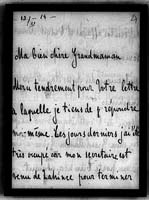 24
Ma bien chère Grandmaman
Merci tendrement pour Votre lettre
à laquelle je tiens de répondre
moi-même. Les jours derniers j'ai été
très occupé car mon secrétaire est
venu de pour terminer